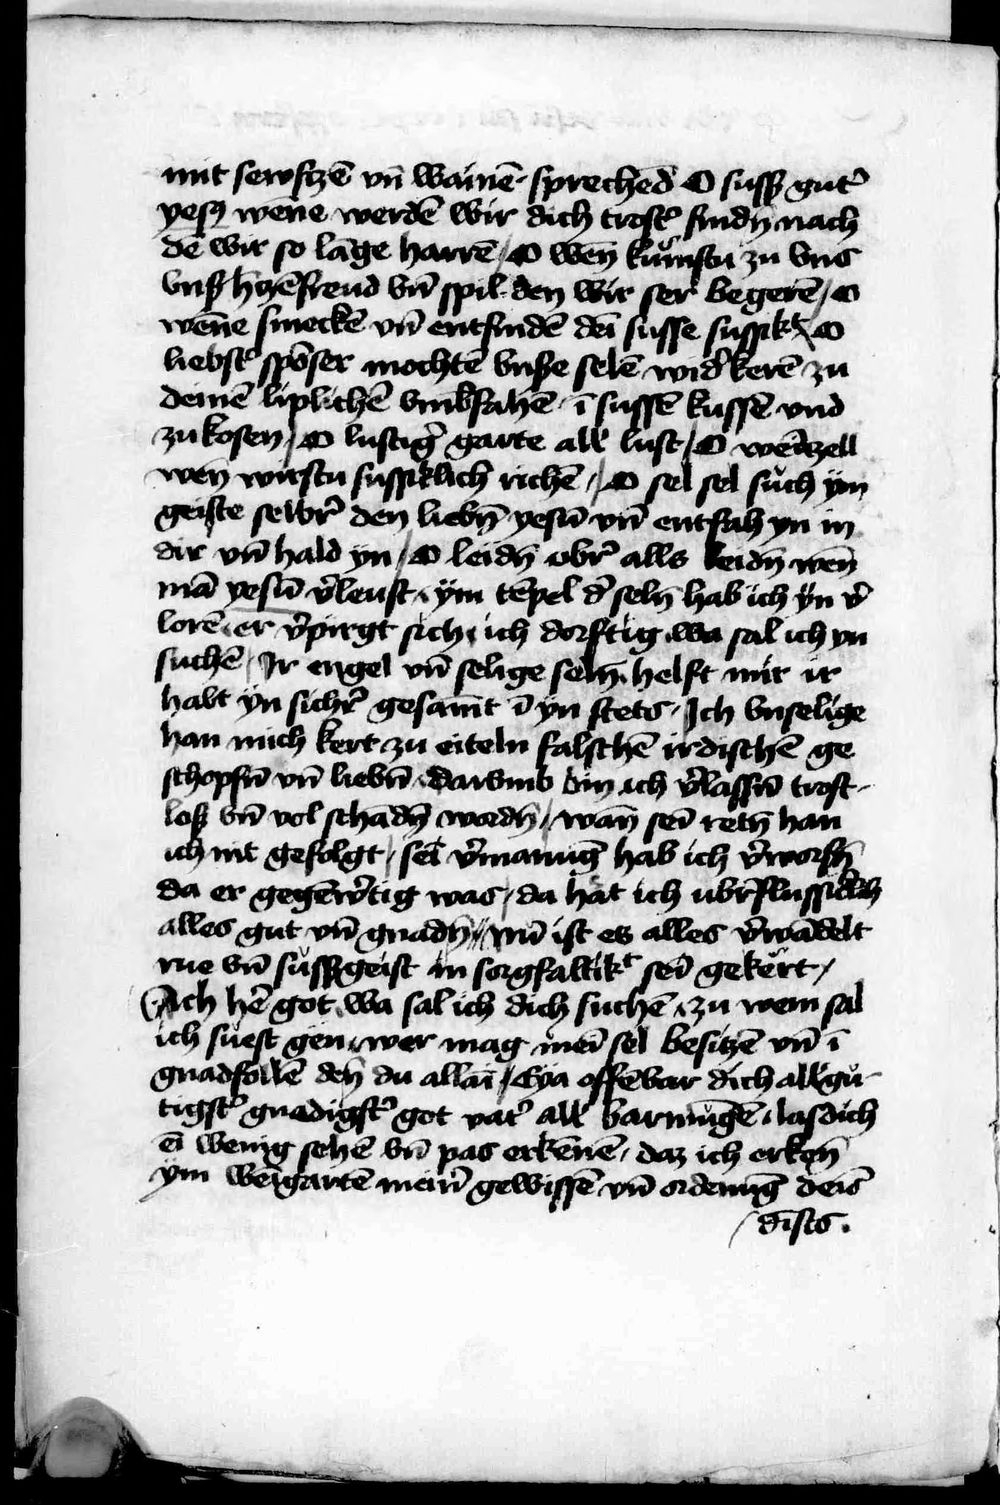 mit sewfczē vn̄ wainē · sprechēd O suss gut᷑
yesꝯ wēne werdē wir dich trost᷑ findn̄ nach
dē wir so lāge harrē / O wen̄ kumstu zu vns
vnß h᷑czēfreud vn̄ spil · den wir ser begerē / O
wēne smeckē vn̄ entfindē dei᷑n susse sussikt / O
liebst᷑ spōser mochtē vnße selē wid᷑kerē zu
deinē liplichē vmbfahēn · ī sussē kussē vnd
zukosen / O lustig᷑ garte all᷑ lust / O weītzell
wen̄ wirstu sussiklich richē / O sel sel such ym
geiste selbr᷑ den liebn̄ yesū vn̄ entfah yn in
dir vn̄ hald yn / O leidn̄ obr᷑ alls leidn̄ wen̄
mā yesū v᷑leust · ym tēpel d᷑ seln̄ hab ich yn v᷑
lorē · er v᷑pirgt sich · ich dorftig · wa sal ich yn
suchē / Ir engel vn̄ selige seln̄ · helft mir ir
habt yn sichr᷑ gesamt ī yn stets · Ich vnselige
han mich kert zu eiteln falschē irdischē ge
schopfn̄ vn̄ liebn̄ · darvmb bin ich v᷑lassn̄ trost-
loß vn̄ vol schādn̄ wordn̄ / wan̄ sei᷑n retn̄ han
ich nit gefolgt / sei᷑n v᷑manung hab ich v᷑worfn̄
da er gegēw᷑tig was / da hat ich ubr᷑flussiclich
alles gut vn̄ gnadn̄ // nū ist es alles v᷑wādelt
rue vn̄ sussgeist in sorgfaltikt sei᷑n gekert /
Ach h᷑e got · wa sal ich dich suchē · zu wem sal
ich suest gen · wer mag mei᷑n sel besitzē vn̄ ī
gnadfollē den̄ du allaī / Eya offēbar dich allgu-
tigst᷑ gnedigst᷑ got vat᷑ all᷑ barmungē · las dich
eī wenig sehē vn̄ pas erkēnē · daz ich erken̄
ym weīgartē mein᷑ gewissē vn̄ ordenung deīs
/ dīsts .